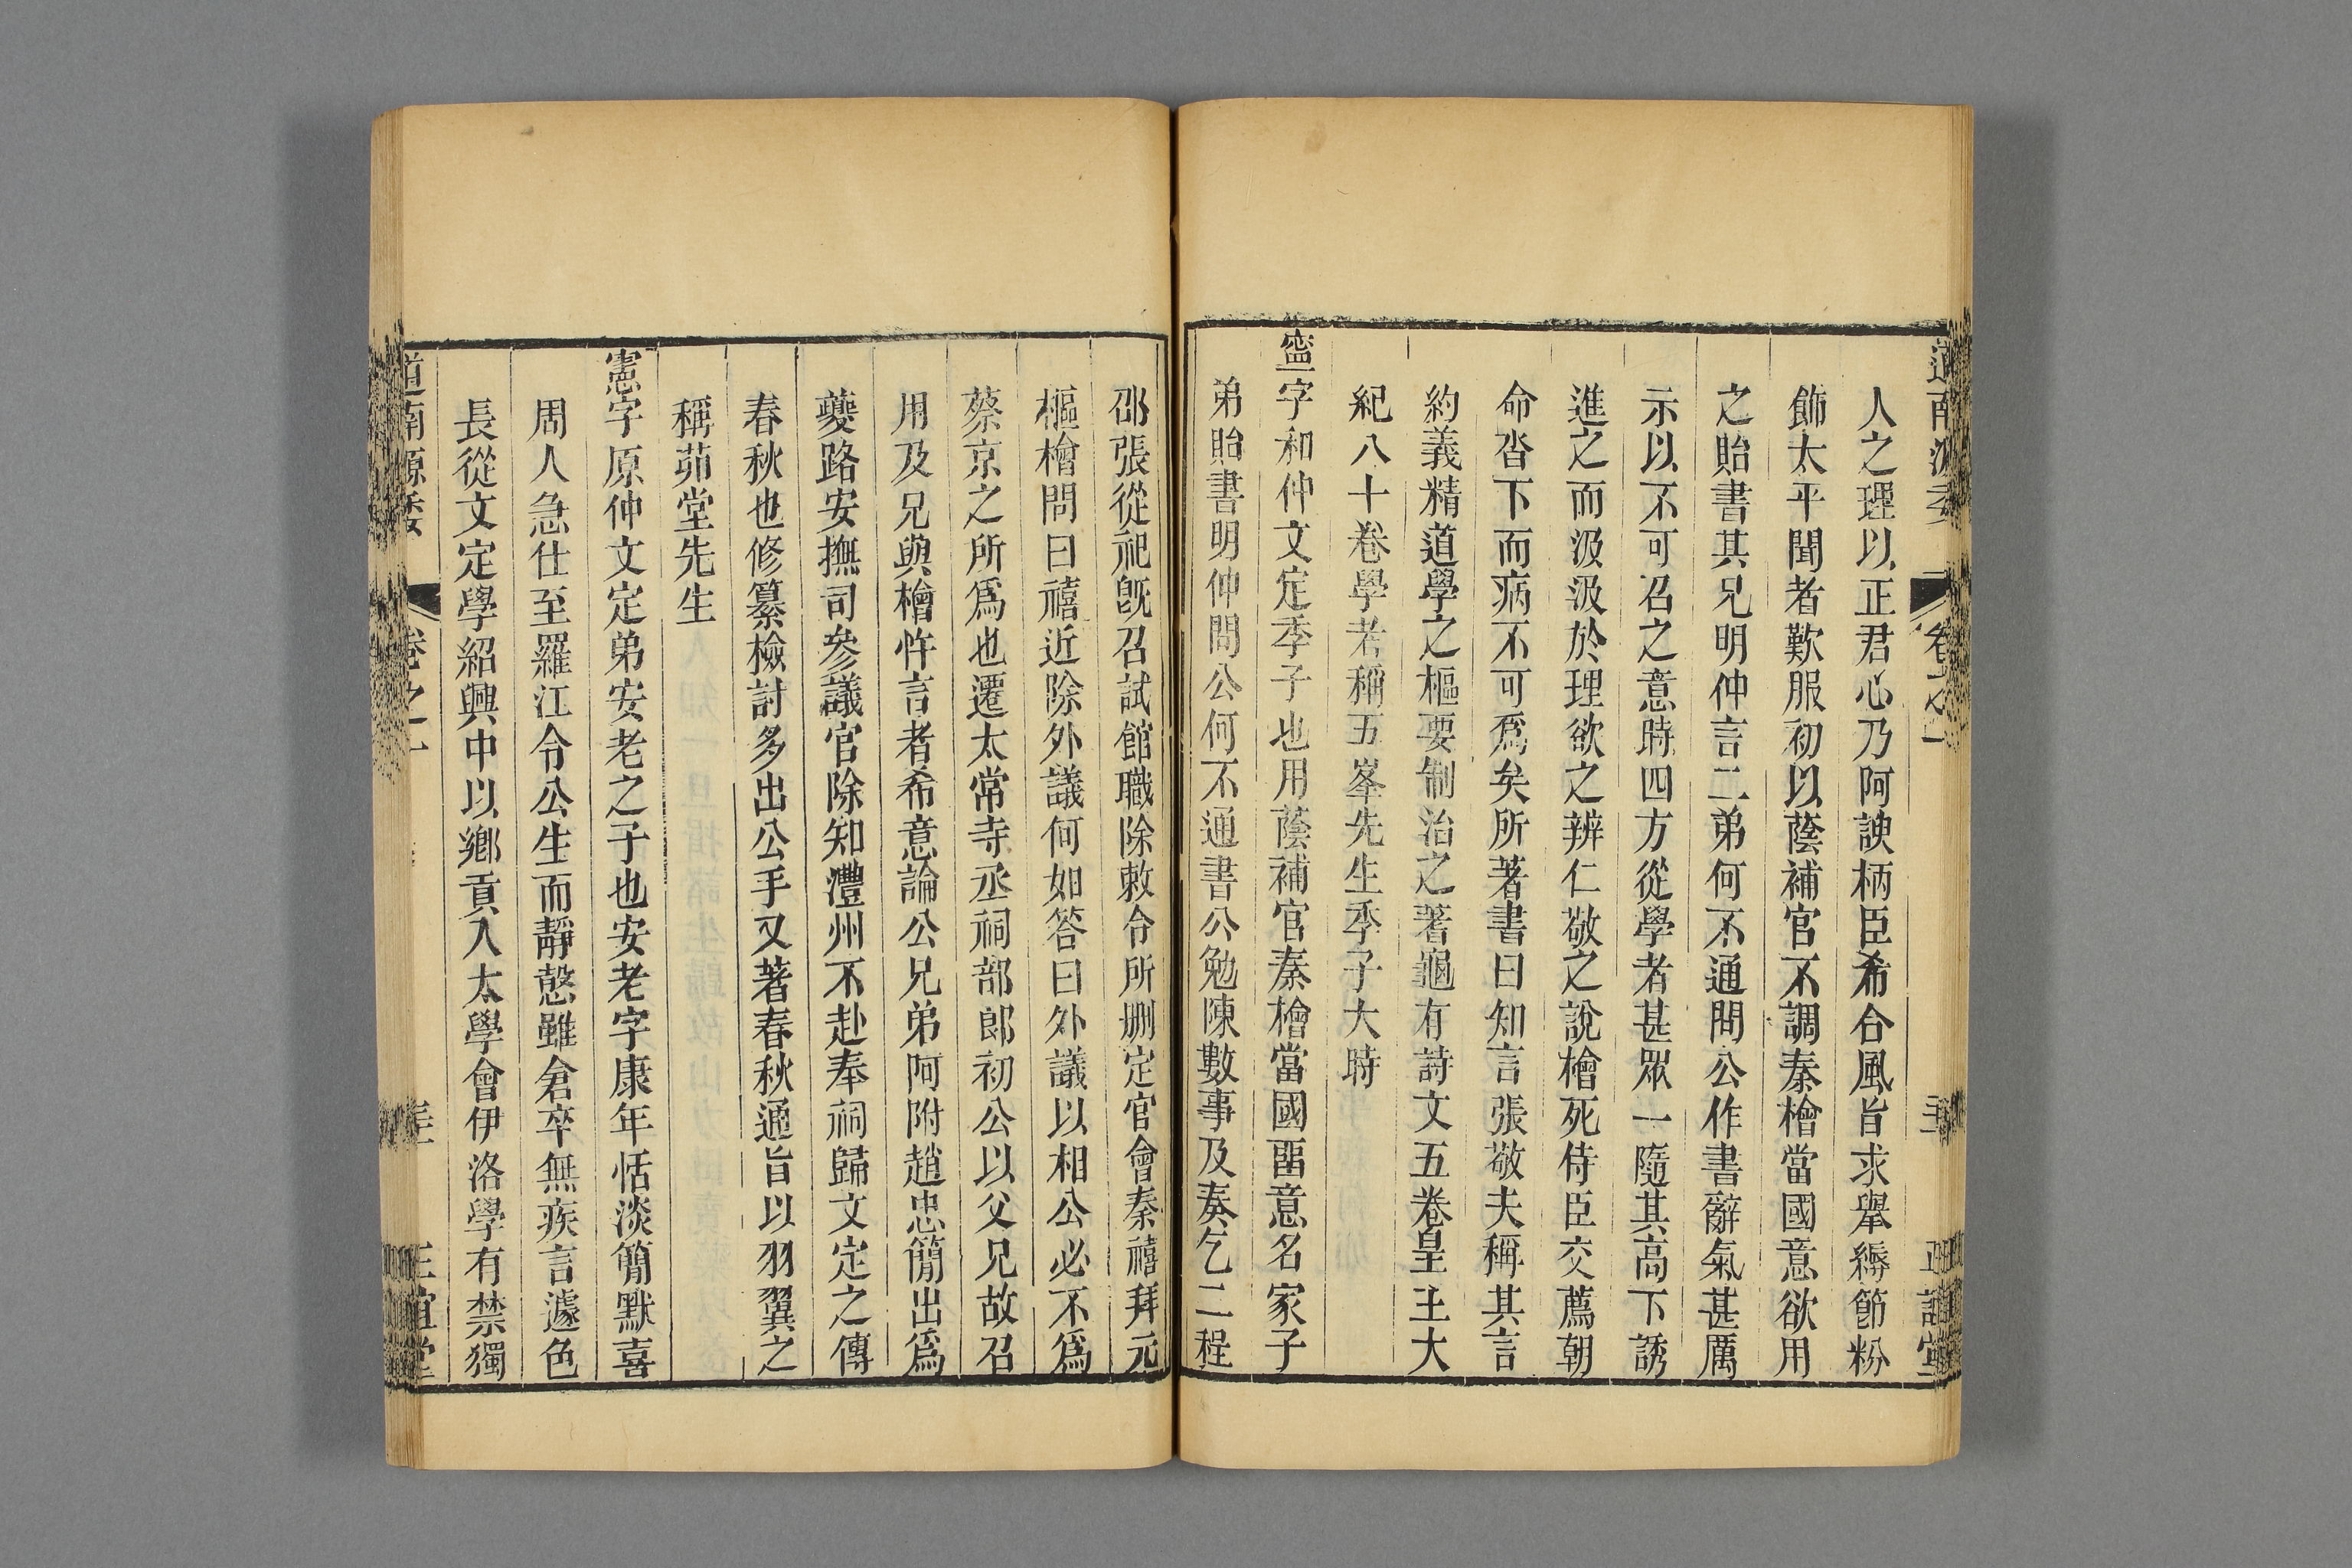 人之理以正君心乃阿諛柄臣希合風旨求舉縟節粉
飾太平聞者歎服初以蔭補官不調秦檜當國意欲用
之貽書其兄明仲言二弟何不通問公作書辭氣甚厲
示以不可召之意時四方從學者甚眾一隨其高下誘
進之而汲汲於理欲之辨仁敬之說檜死侍臣交薦朝
命沓下而病不可爲矣所著書曰知言張敬夫稱其言
約義精道學之樞要制治之蓍龜有詩文五卷皇王大
紀八十卷學者稱五峯先生季子大時
寧字和仲文定季子也用蔭補官秦檜當國留意名家子
弟貽書明仲問公何不通書公勉陳數事及奏乞二程
邵張從祀旣召試館職除敕令所刪定官會秦禧拜元
樞檜問曰禧近除外議何如答曰外議以相公必不爲
蔡京之所爲也遷太常寺丞祠部郎初公以父兄故召
用及兄與檜忤言者希意論公兄弟阿附趙忠簡出爲
夔路安撫司參議官除知澧州不赴奉祠歸文定之傳
春秋也修纂檢討多出公手又著春秋通旨以羽翼之
稱茆堂先生
憲字原仲文定弟安老之子也安老字康年恬淡簡默喜
周人急仕至羅江令公生而靜慤雖倉卒無疾言遽色
長從文定學紹興中以鄉貢入太學會伊洛學有禁獨
道南源委
卷之一
正誼堂